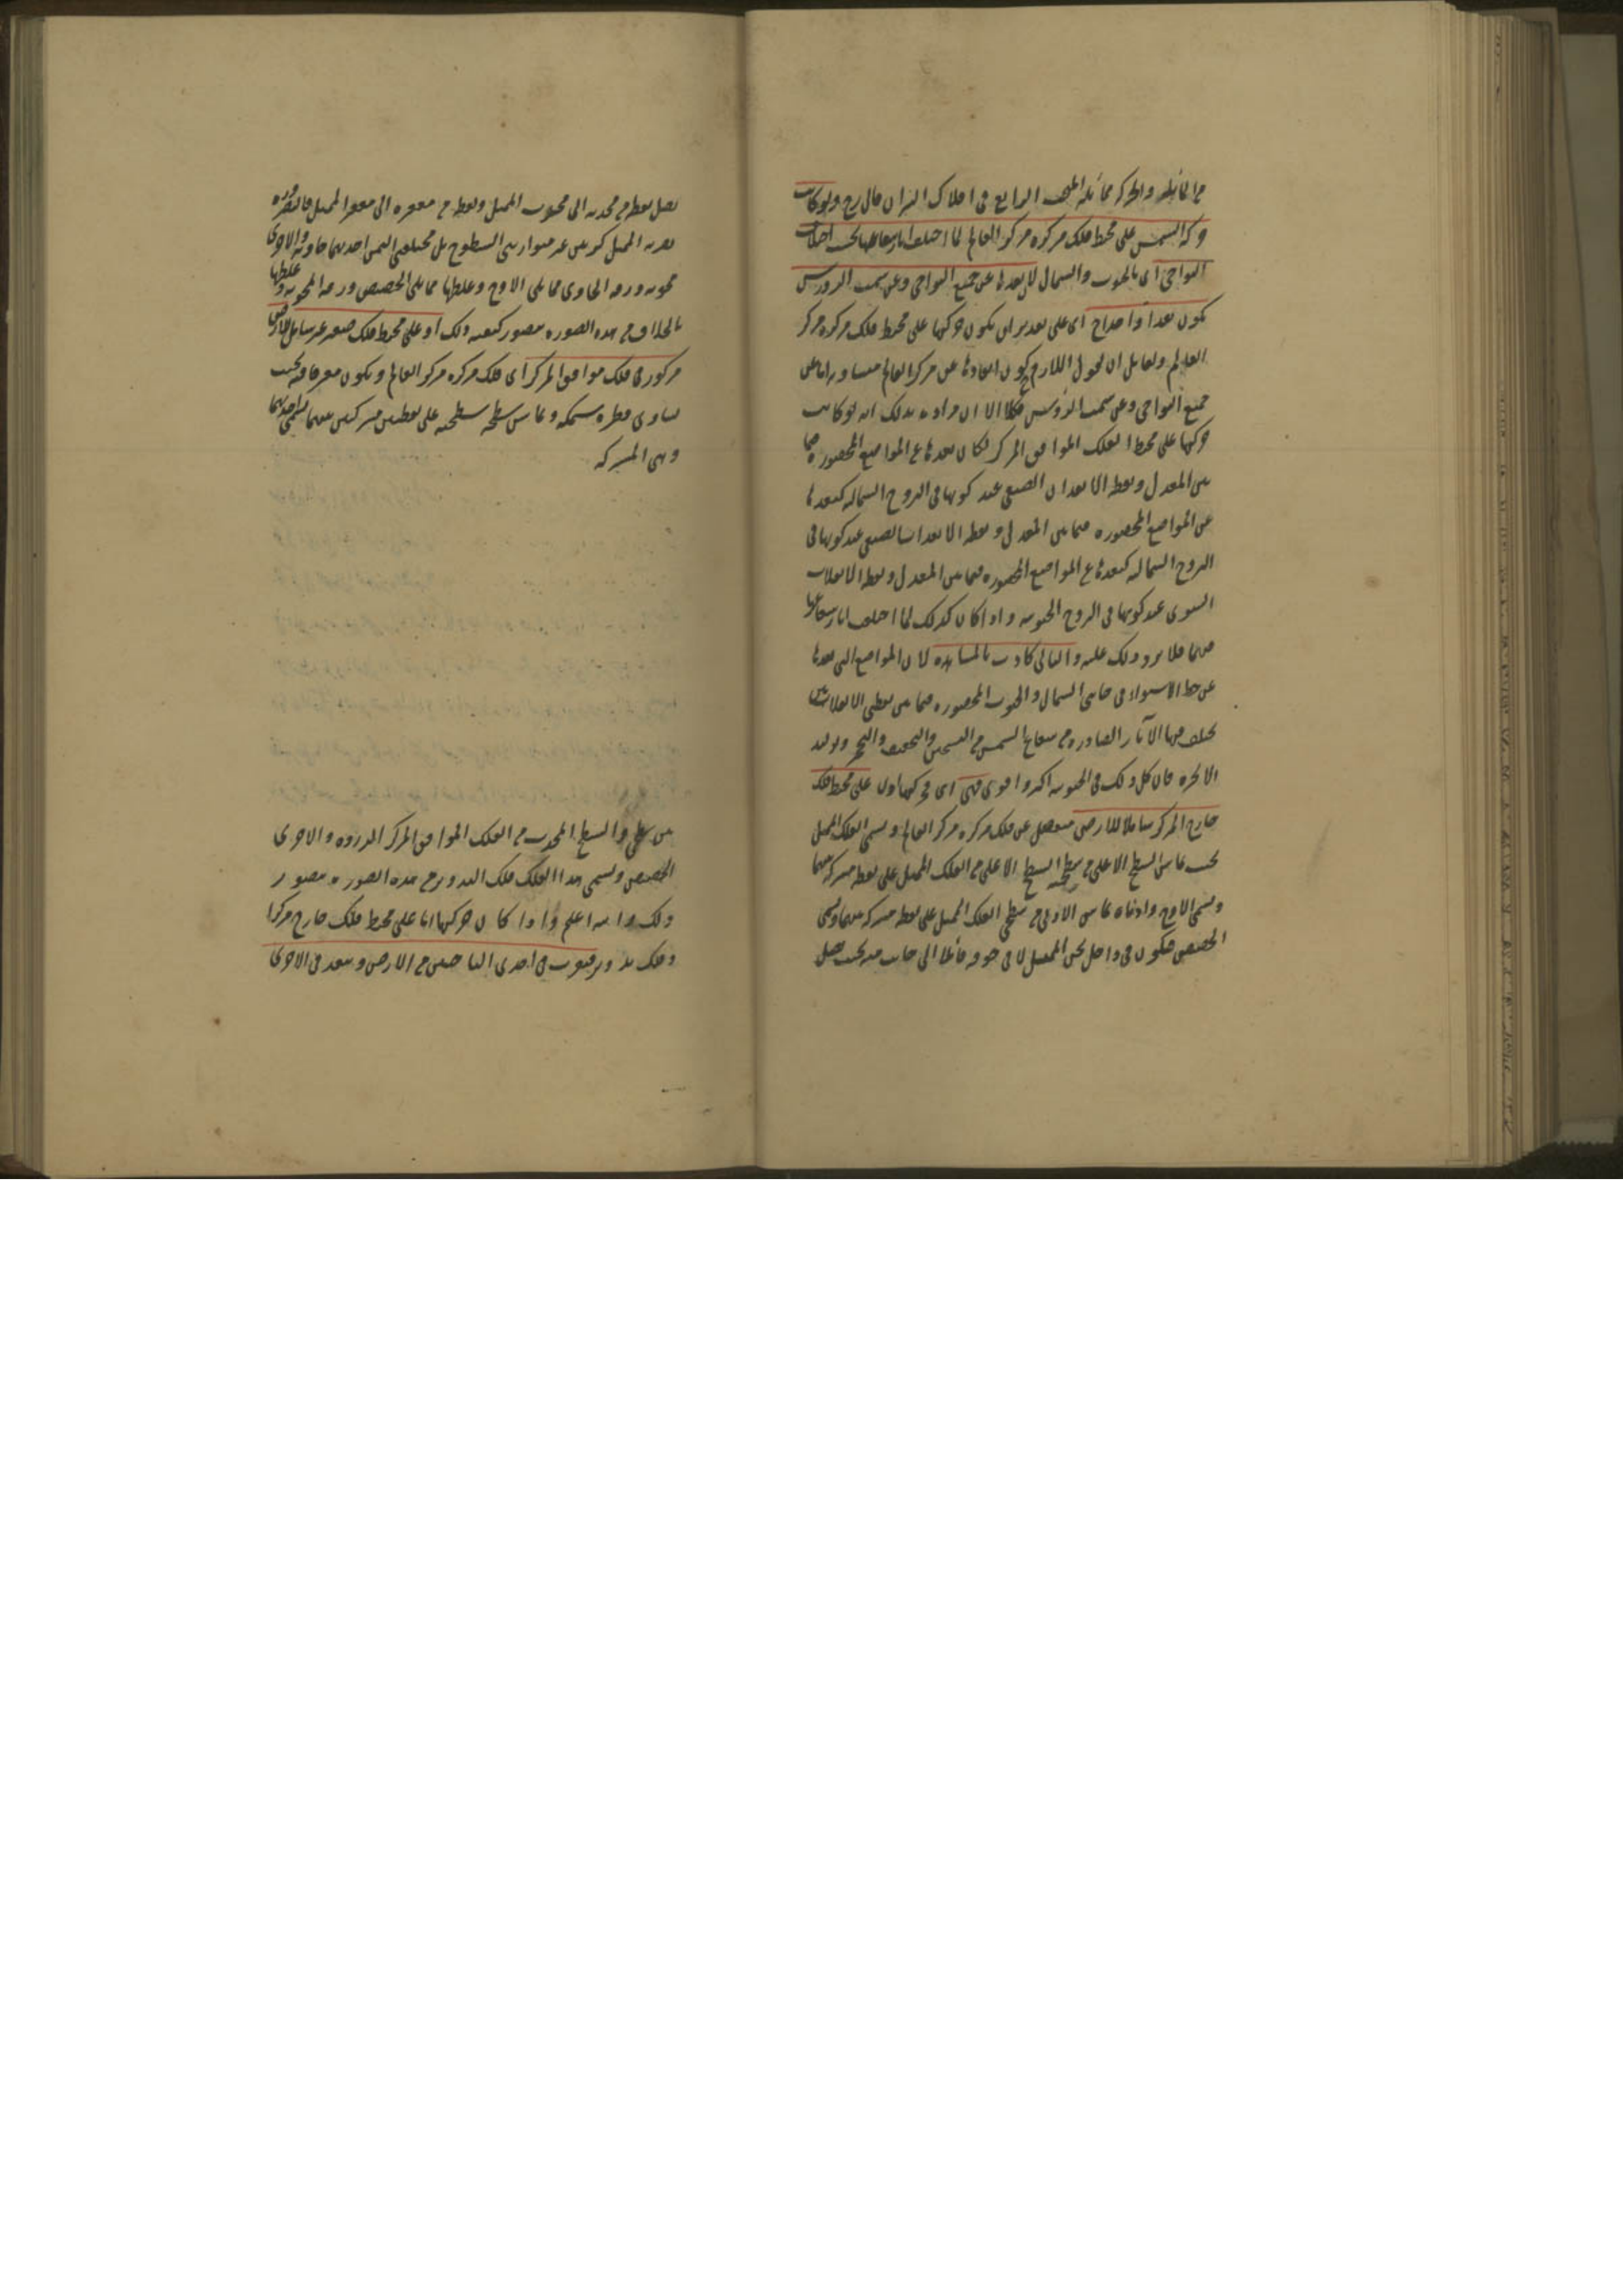 من المقابلة والحركة مماثلة المبحث الرابع في افلاك النيران قال رح ولو كانت
حركة الشمس على محيط فلك مركزه مركز العالم لما اختلف اثار شعاعها بحسب اختلاف
النواحي اى بالجنوب والشمال لان بعدها عن جميع النواحي وعن سمت الرؤس
يكون بعدا واحدا ح اى على تقدير ان يكون حركتها على محيط فلك مركزه مركز
العالم ولقايل ان يقول اللازم ح كون ابعادها عن مركز العالم متساوية اما عن
جميع النواحي وعن سمت الرؤس فكلا الا ان مراده بذلك انه لو كانت
حركتها على محيط الفلك الموافق المركز لكان بعدها ع المواضع المحصورة فيما
بين المعدل ونقطة الانقلاب الصيفي عند كونها في البروج الشمالية كبعدها
عن المواضع المحصورة فيما بين المعدل ونقطة الانقلاب الصيفي عند كونها في
البروج الشمالية كبعدها ع المواضع المحصورة فيما بين المعدل ونقطة الانقلاب
الشتوى عند كونها في البروج الجنوبية واذا كان كذلك لما اختلف اثار شعاعها
فيهما فلا يرد ذلك عليه والتالى كاذب بالمشاهدة لان المواضع التى بعدها
عن خط الاستواء في جانبى الشمال والجنوب المحصورة فيما بين نقطتى الانقلابين
يختلف فيها الآثار الصادرة من شعاع الشمس من التسخين والتجفيف والتبخير وتوليد
الابخرة فان كل ذلك في الجنوبية اكثر واقوى فهى اى فحركتها اذن على محيط فلك
خارج المركز شاملا للارض منفصل عن فلك مركزه مركز العالم ويسمى الفلك الممثل
بحيث يماس السطح الاعلى من سطحيه السطح الاعلى من الفلك الممثل على نقطة مشتركة بينهما
ويسمى الاوج وادناه يماس الادنى من سطحى الفلك الممثل على نقطة مشتركة بينهما ويسمى
الحضيض فيكون في داخل ثخن الممثل لا في جوفه مائلا الى جانب منه بحيث يصل
يصل نقطة من محدبه الى محدب الممثل ونقطة من مقعره الى مقعر الممثل فالضرورة
يصير الممثل كرتين غير متوازيتى السطوح بل مختلفتى الثخن احديهما حاوية والاخرى
محوية ورقة الحاوى مما يلى الاوج وغلظها مما يلى الحضيض ورقة المحوية وغلظها
بالخلاف من هذه الصورة يتصور كيفية ذلك او على محيط فلك صغير غير شامل للارض
مركوز في فلك موافق المركز اى فلك مركزه مركز العالم ويكون مغرقا فيه بحيث
يساوى قطره سمكه ويماس سطحه سطحيه على نقطتين مشتركتين بينهما يسمى احديهما
وهى المشتركة
بين سطحه والسطح المحدب من الفلك الموافق المركز الذروة والاخرى
الحضيض ويسمى هذا الفلك فلك التدوير ومن هذه الصورة يتصور
ذلك والله اعلم واذا كان حركتها اما على محيط فلك خارج مركز او
فلك تدوير فيقرب في احدى الناحيتين من الارض ويبعد في الاخرى